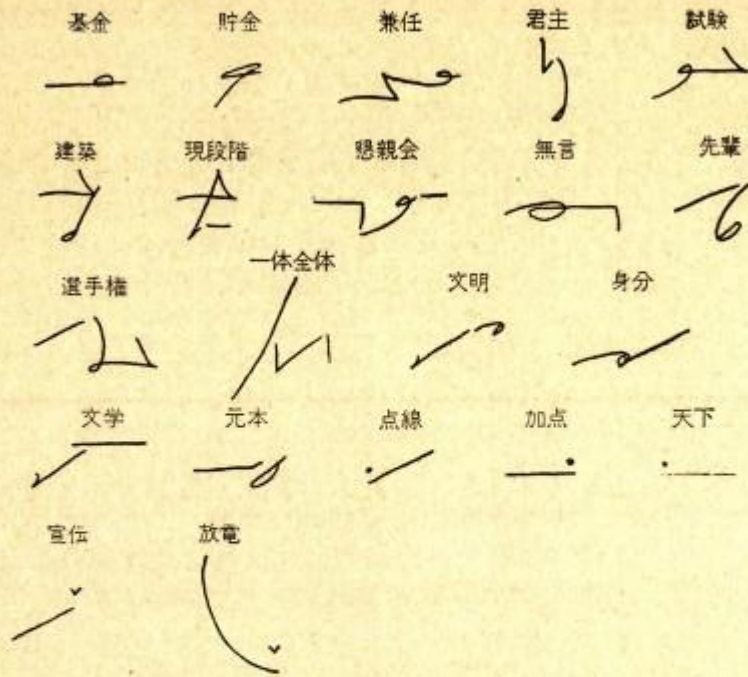 基金 貯金 兼任 君主 試験
建築 現段階 懇親会 無言 先輩
選手権 一体全体 文明 身分
文学 元本 点線 加点 天下
宣伝 放電